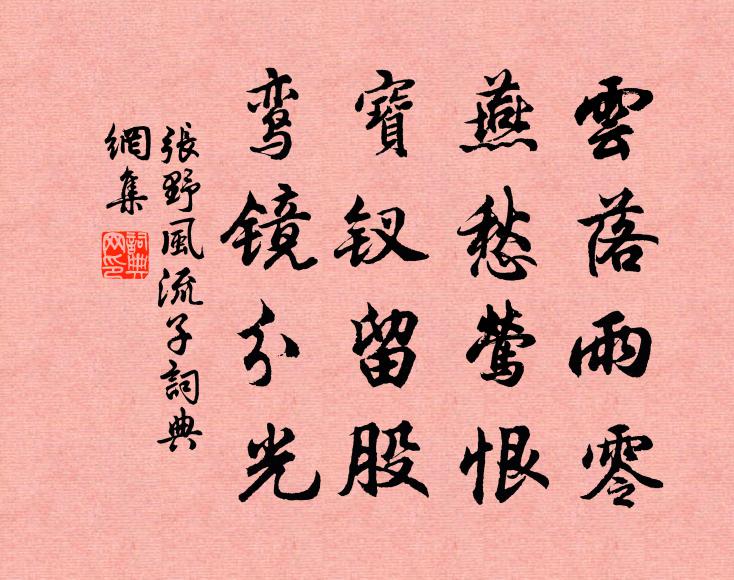 雲落雨零
燕愁莺恨
寶钗留股
鸾镜分光
張野風流子詞典
網集
詞典
网印